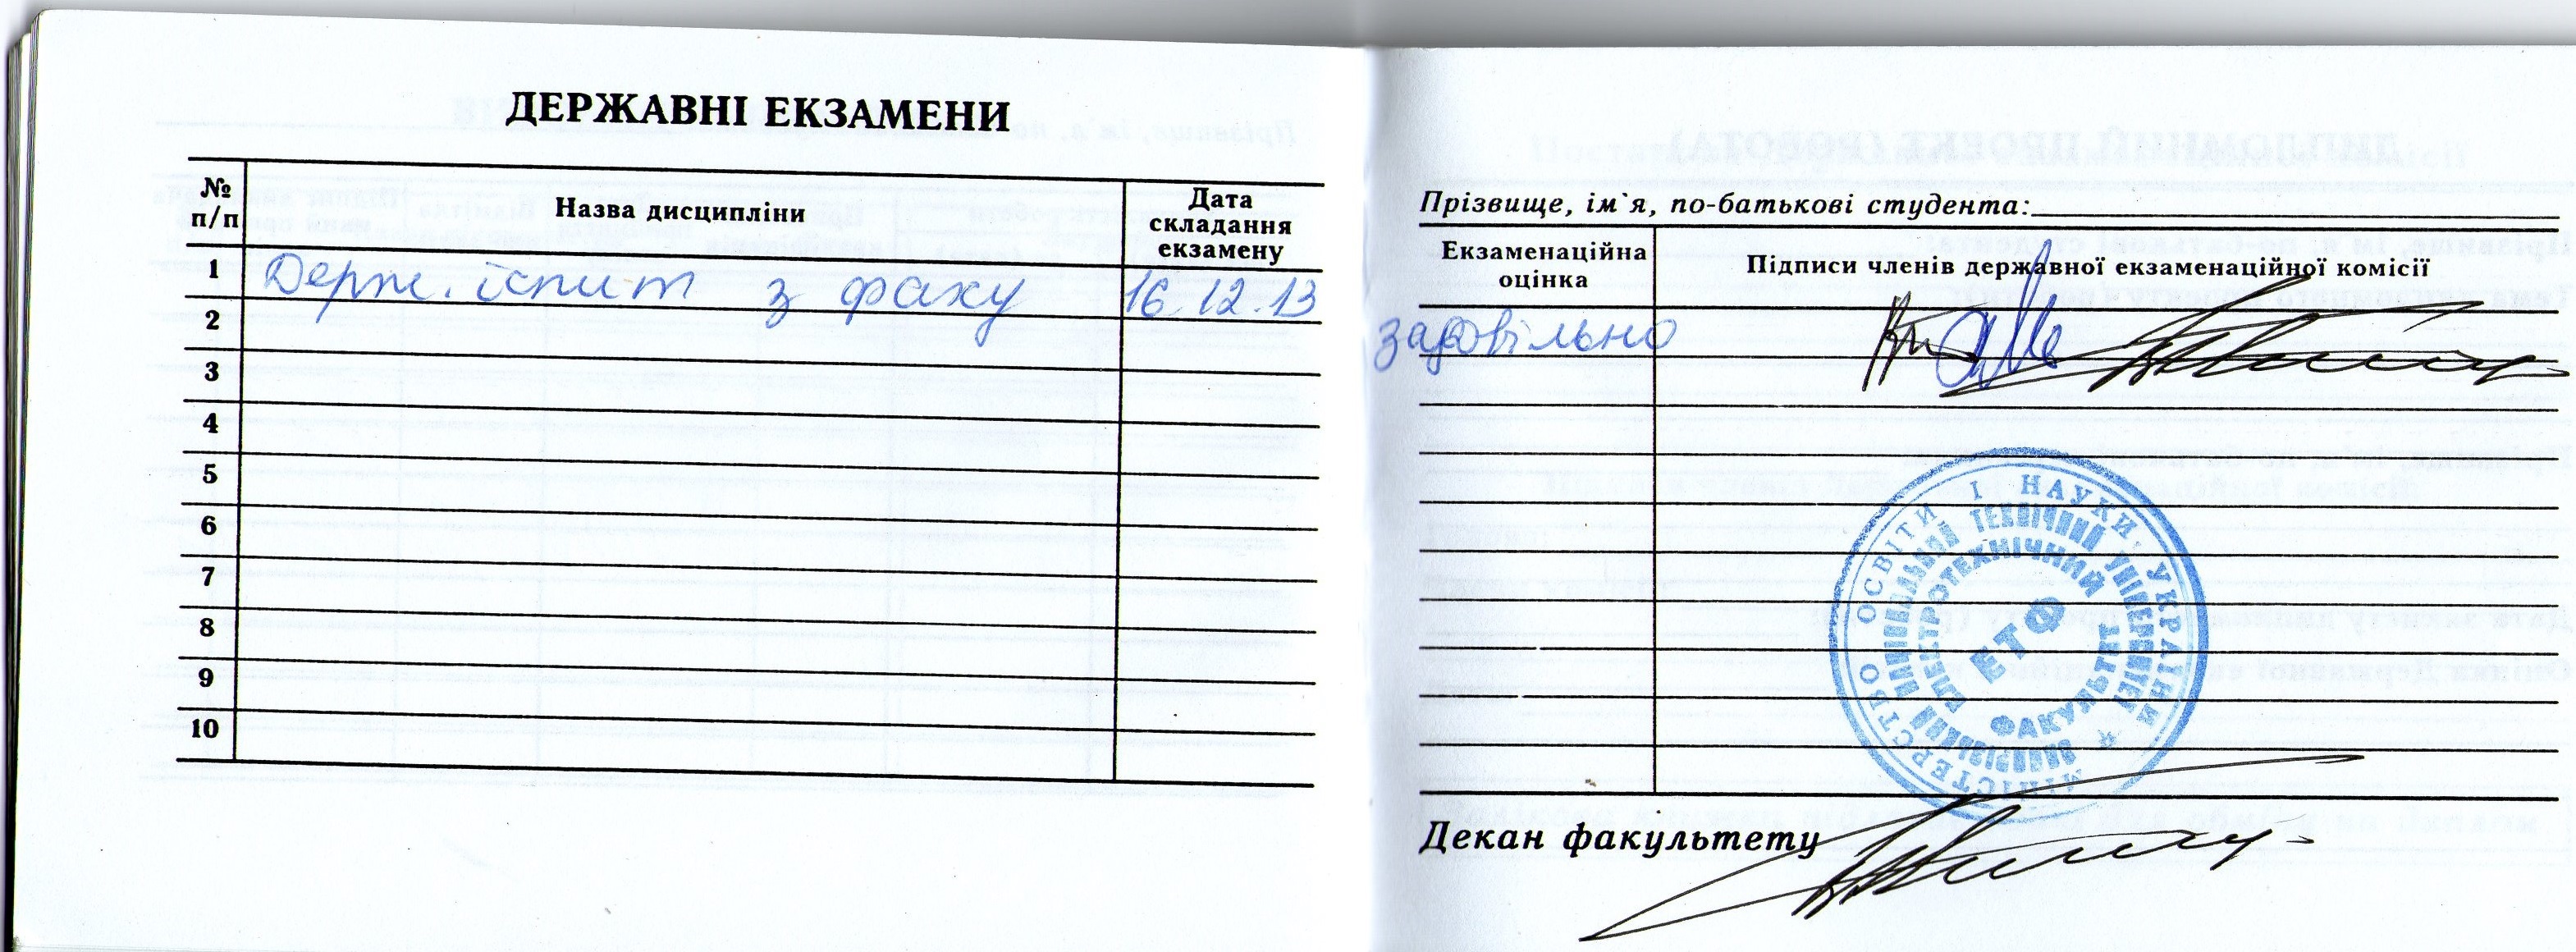 ДЕРЖАВНІ ЕКЗАМЕНИ
№ п/п
Назва дисципліни
Дата складання екзамену
1 Держ. іспит з фаху 16.12.13
2
3
4
5
6
7
8
9
10
Прізвище, ім`я, по-батькові студента:
Екзаменаційна оцінка
Підписи членів державної екзаменаційної комісії
задовільно
МІНІСТЕРСТВО ОСВІТИ І НАУКИ УКРАЇНИ
НАЦІОНАЛЬНИЙ ТЕХНІЧНИЙ УНІВЕРСИТЕТ
ЕЛЕКТРОТЕХНІЧНИЙ ФАКУЛЬТЕТ
ЕТФ
Декан факультету